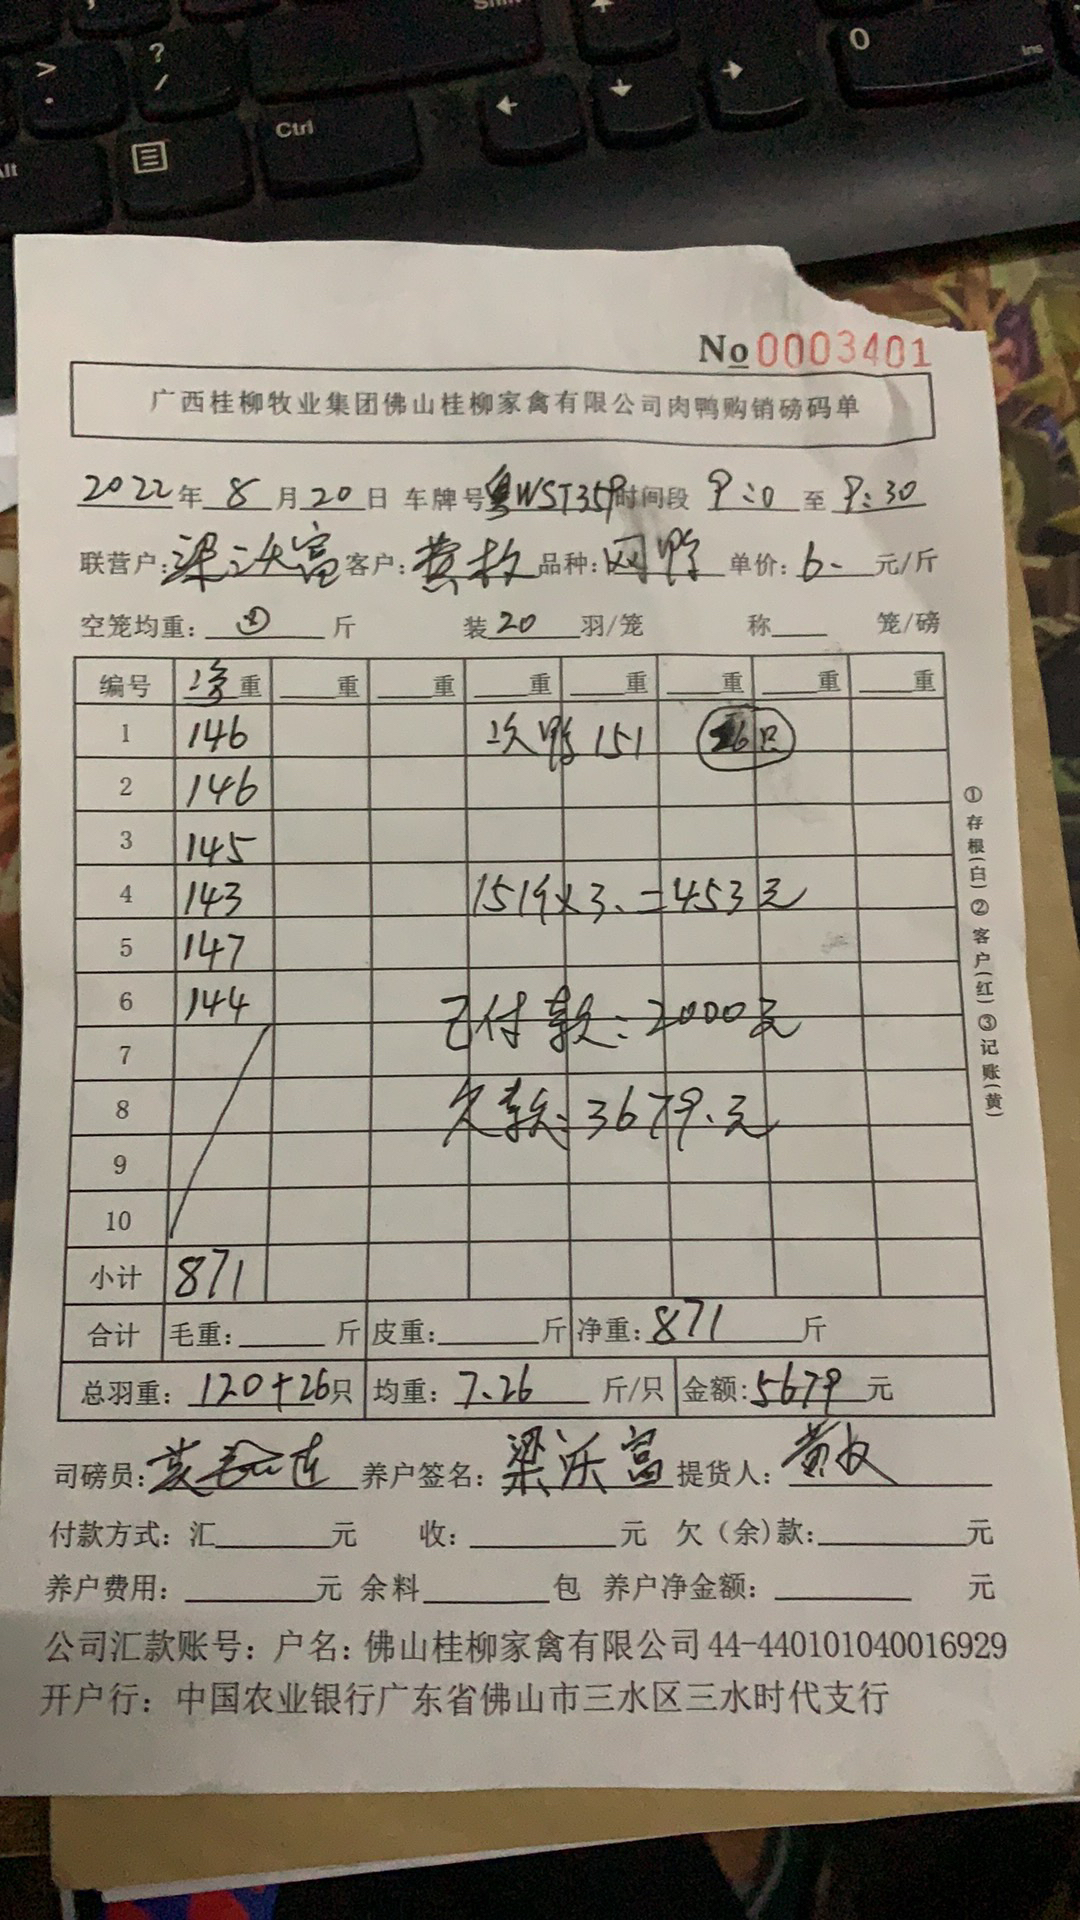 Shift
>
.
?
/
0
Ins
Alt
Ctrl
No 0003401
广西桂柳牧业集团佛山桂柳家禽有限公司肉鸭购销磅码单
2022年 8 月 20 日 车牌号粤WST359 时间段 9:0 至 9:30
联营户:梁沃富 客户:黄枚 品种: 单价: 6. 元/斤
空笼均重: 斤 装 20 羽/笼 称 笼/磅
编号 净重 重 重 重 重 重 重 重
1 146 次鸭 151 26只
2 146
3 145
4 143 151斤×3.=453元
5 147
6 144 已付款:2000元
7
8 欠款:3679.元
9
10
小计 871
合计 毛重: 斤 皮重: 斤 净重: 871 斤
总羽重: 120+26只 均重: 7.26 斤/只 金额:5679 元
司磅员: 养户签名: 梁沃富 提货人: 黄枚
付款方式: 汇 元 收: 元 欠(余)款: 元
养户费用: 元 余料 包 养户净金额: 元
公司汇款账号: 户名: 佛山桂柳家禽有限公司 44-440101040016929
开户行: 中国农业银行广东省佛山市三水区三水时代支行
①存根(白)②客户(红)③记账(黄)